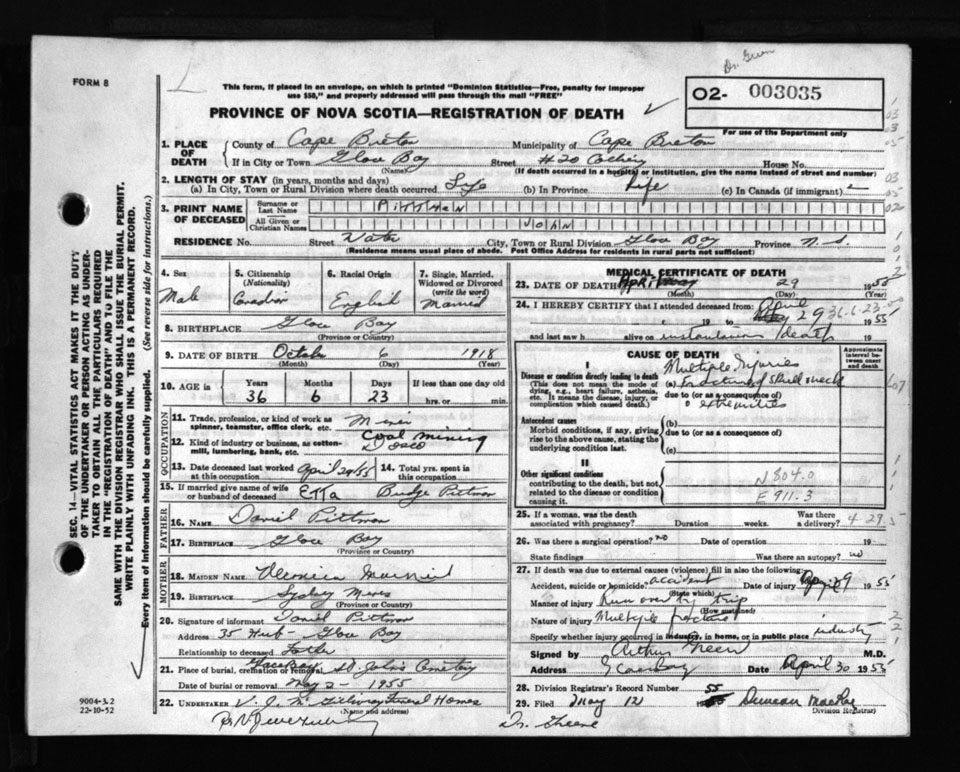 Dr. Green
FORM 8
This form, if placed in an envelope, on which is printed "Dominion Statistics—Free, penalty for improper
use $50," and properly addressed will pass through the mail "FREE"
02- 003035
PROVINCE OF NOVA SCOTIA—REGISTRATION OF DEATH
For use of the Department only
1. PLACE OF DEATH County of Cape Breton Municipality of Cape Breton
If in City or Town Glace Bay Street #20 Colliery House No.
(Name) (If death occurred in a hospital or institution, give the name instead of street and number)
2. LENGTH OF STAY (in years, months and days)
(a) In City, Town or Rural Division where death occurred Life (b) In Province Life (c) In Canada (if immigrant)
3. PRINT NAME OF DECEASED Surname or Last Name PITTMAN
All Given or Christian Names JOHN
RESIDENCE No. Street Water City, Town or Rural Division Glace Bay Province N.S.
(Residence means usual place of abode. Post Office Address for residents in rural parts not sufficient)
4. Sex 5. Citizenship (Nationality) 6. Racial Origin 7. Single, Married, Widowed or Divorced (write the word)
Male Canadian English Married
8. BIRTHPLACE Glace Bay
(Province or Country)
9. DATE OF BIRTH October 6 1918
(Month) (Day) (Year)
10. AGE IN Years Months Days If less than one day old
36 6 23 hrs. or min.
OCCUPATION
11. Trade, profession, or kind of work as spinner, teamster, office clerk, etc. Miner
12. Kind of industry or business, as cotton-mill, lumbering, bank, etc. Coal Mining Dosco
13. Date deceased last worked at this occupation April 29/55 14. Total yrs. spent in this occupation
15. If married give name of wife or husband of deceased Etta Budge Pittman
FATHER
16. NAME Daniel Pittman
17. BIRTHPLACE Glace Bay
(Province or Country)
MOTHER
18. MAIDEN NAME Veronica
19. BIRTHPLACE Sydney Mines
(Province or Country)
20. Signature of informant Daniel Pittman
Address 35 Hub - Glace Bay
Relationship to deceased Father
21. Place of burial, cremation or removal Glace Bay St. John's Cemetery
Date of burial or removal May 2 - 1955
22. UNDERTAKER V. J. McGillivray Funeral Homes
(Name and address)
MEDICAL CERTIFICATE OF DEATH
23. DATE OF DEATH April 29 1955
(Month) (Day) (Year)
24. I HEREBY CERTIFY that I attended deceased from: April 29 36-6-23
19 to 1955
and last saw h alive on instantaneous death
CAUSE OF DEATH
Approximate interval between onset and death
I
Disease or condition directly leading to death
(This does not mean the mode of dying, e.g., heart failure, asthenia, etc. It means the disease, injury, or complication which caused death.)
Multiple Injuries
(a) Fractured skull neck
due to (or as a consequence of)
& extremities
Antecedent causes
Morbid conditions, if any, giving rise to the above cause, stating the underlying condition last.
(b)
due to (or as a consequence of)
(c)
II
Other significant conditions
contributing to the death, but not related to the disease or condition causing it.
N 804.0
E 911.3
25. If a woman, was the death associated with pregnancy? Duration weeks. Was there a delivery? 4-29-5
26. Was there a surgical operation? no Date of operation 19
State findings Was there an autopsy? no
27. If death was due to external causes (violence) fill in also the following:
Accident, suicide or homicide? accident Date of injury April 29 1955
(State which)
Manner of injury Run over by trip
(How sustained)
Nature of injury Multiple fracture
Specify whether injury occurred in industry, in home, or in public place industry
Signed by Arthur Green M.D.
Address Glace Bay Date April 30 1955
28. Division Registrar's Record Number 55
29. Filed May 12 Duncan MacRae
Division Registrar
Dr. Greene
SEC. 14—VITAL STATISTICS ACT MAKES IT THE DUTY
OF THE UNDERTAKER OR PERSON ACTING AS UNDER-
TAKER TO OBTAIN ALL THE PARTICULARS REQUIRED
IN THE "REGISTRATION OF DEATH" AND TO FILE THE
SAME WITH THE DIVISION REGISTRAR WHO SHALL ISSUE THE BURIAL PERMIT.
WRITE PLAINLY WITH UNFADING INK. THIS IS A PERMANENT RECORD.
Every item of information should be carefully supplied. (See reverse side for instructions.)
9004-3.2
22-10-52